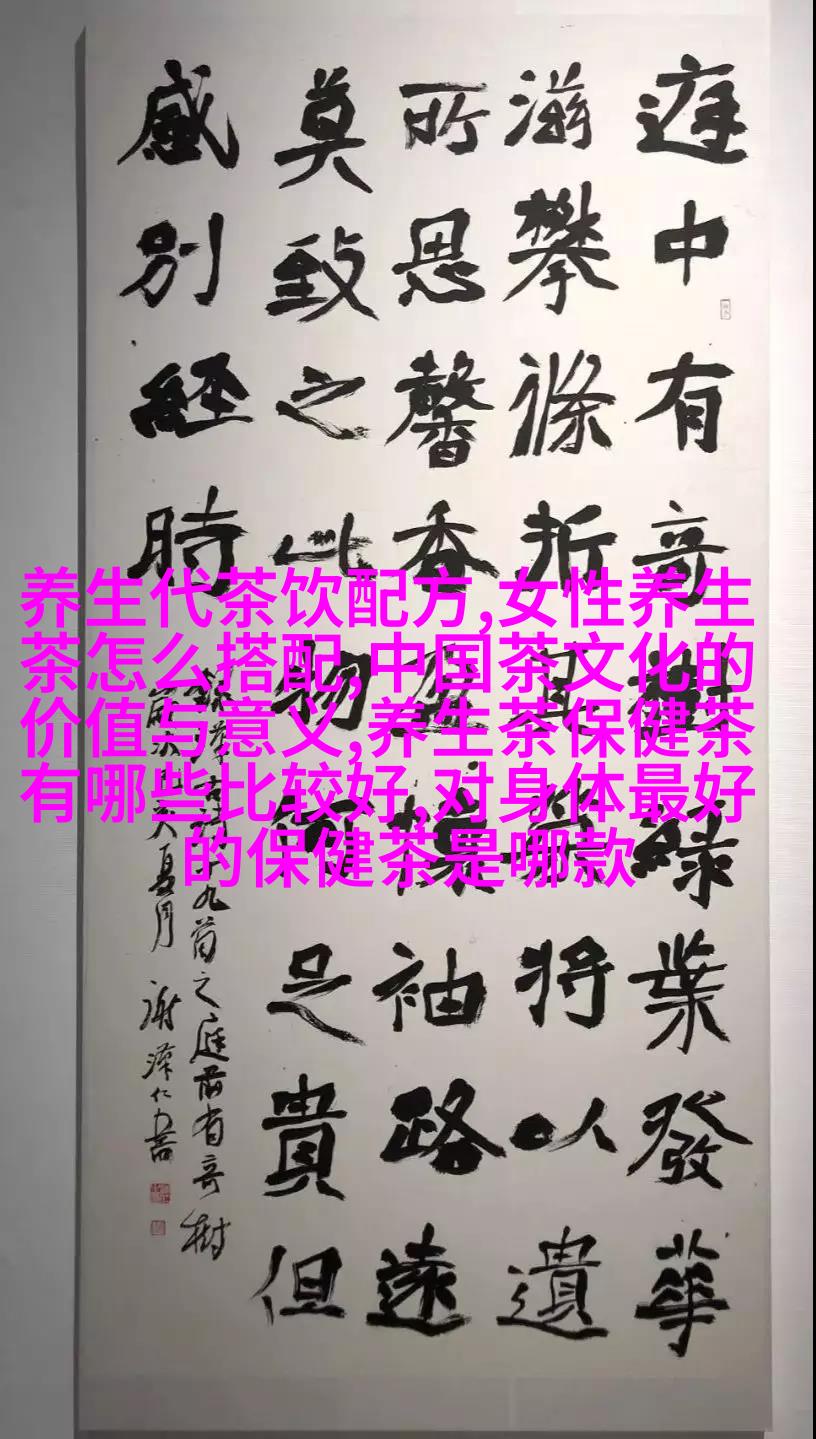 庭中有奇樹綠葉發華
滋攀條折其榮將以遺
所思馨香盈懷袖路遠
莫致之此物何足貴但
感別經時
十九首之庭前有奇樹
夏月 謝澤仁書
养生代茶饮配方,女性养生
茶怎么搭配,中国茶文化的
价值与意义,养生茶保健茶
有哪些比较好,对身体最好
的保健茶是哪款